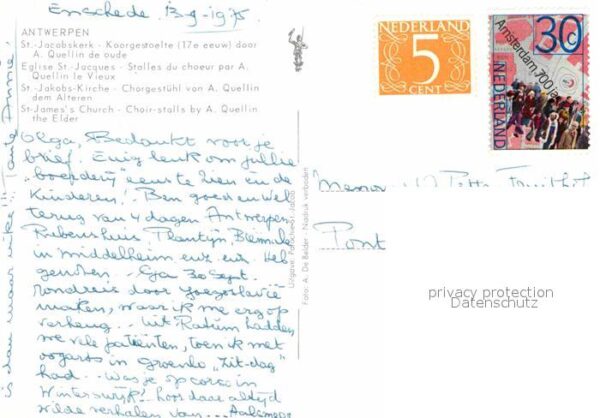 Enschede 13-9-1975
ANTWERPEN
St.-Jacobskerk - Koorgestoelte (17e eeuw) door
A. Quellin de oude
Eglise St-Jacques - Stalles du choeur par A.
Quellin le Vieux
St.-Jakobs-Kirche - Chorgestühl von A. Quellin
dem Älteren
St-James's Church - Choir-stalls by A. Quellin
the Elder
Olga, Bedankt voor je
brief. Enig leuk om jullie
"boerderij" eens te zien en de
kinderen! Ben goed en wel
terug van 4 dagen Antwerpen
Rubenshuis Plantijn
in Middelheim enz. enz. Heb
genoten. Ga 30 Sept.
rondreis door Joegoslavië
maken, waar ik me erg op
verheug. Uit Radium hadden
we vele patiënten, toen ik met
in Groenlo "Zit-dag"
had. Was je op corso in
Winterswijk? hoor daar altijd
wilde verhalen van... Aalsmeer
is dan maar niks!!! Tante Annie.
Uitgave:
Foto: A. De Belder - Nadruk verboden
NEDERLAND
5
CENT
30c
Amsterdam 700 jaar
NEDERLAND
Pont
privacy protection
Datenschutz